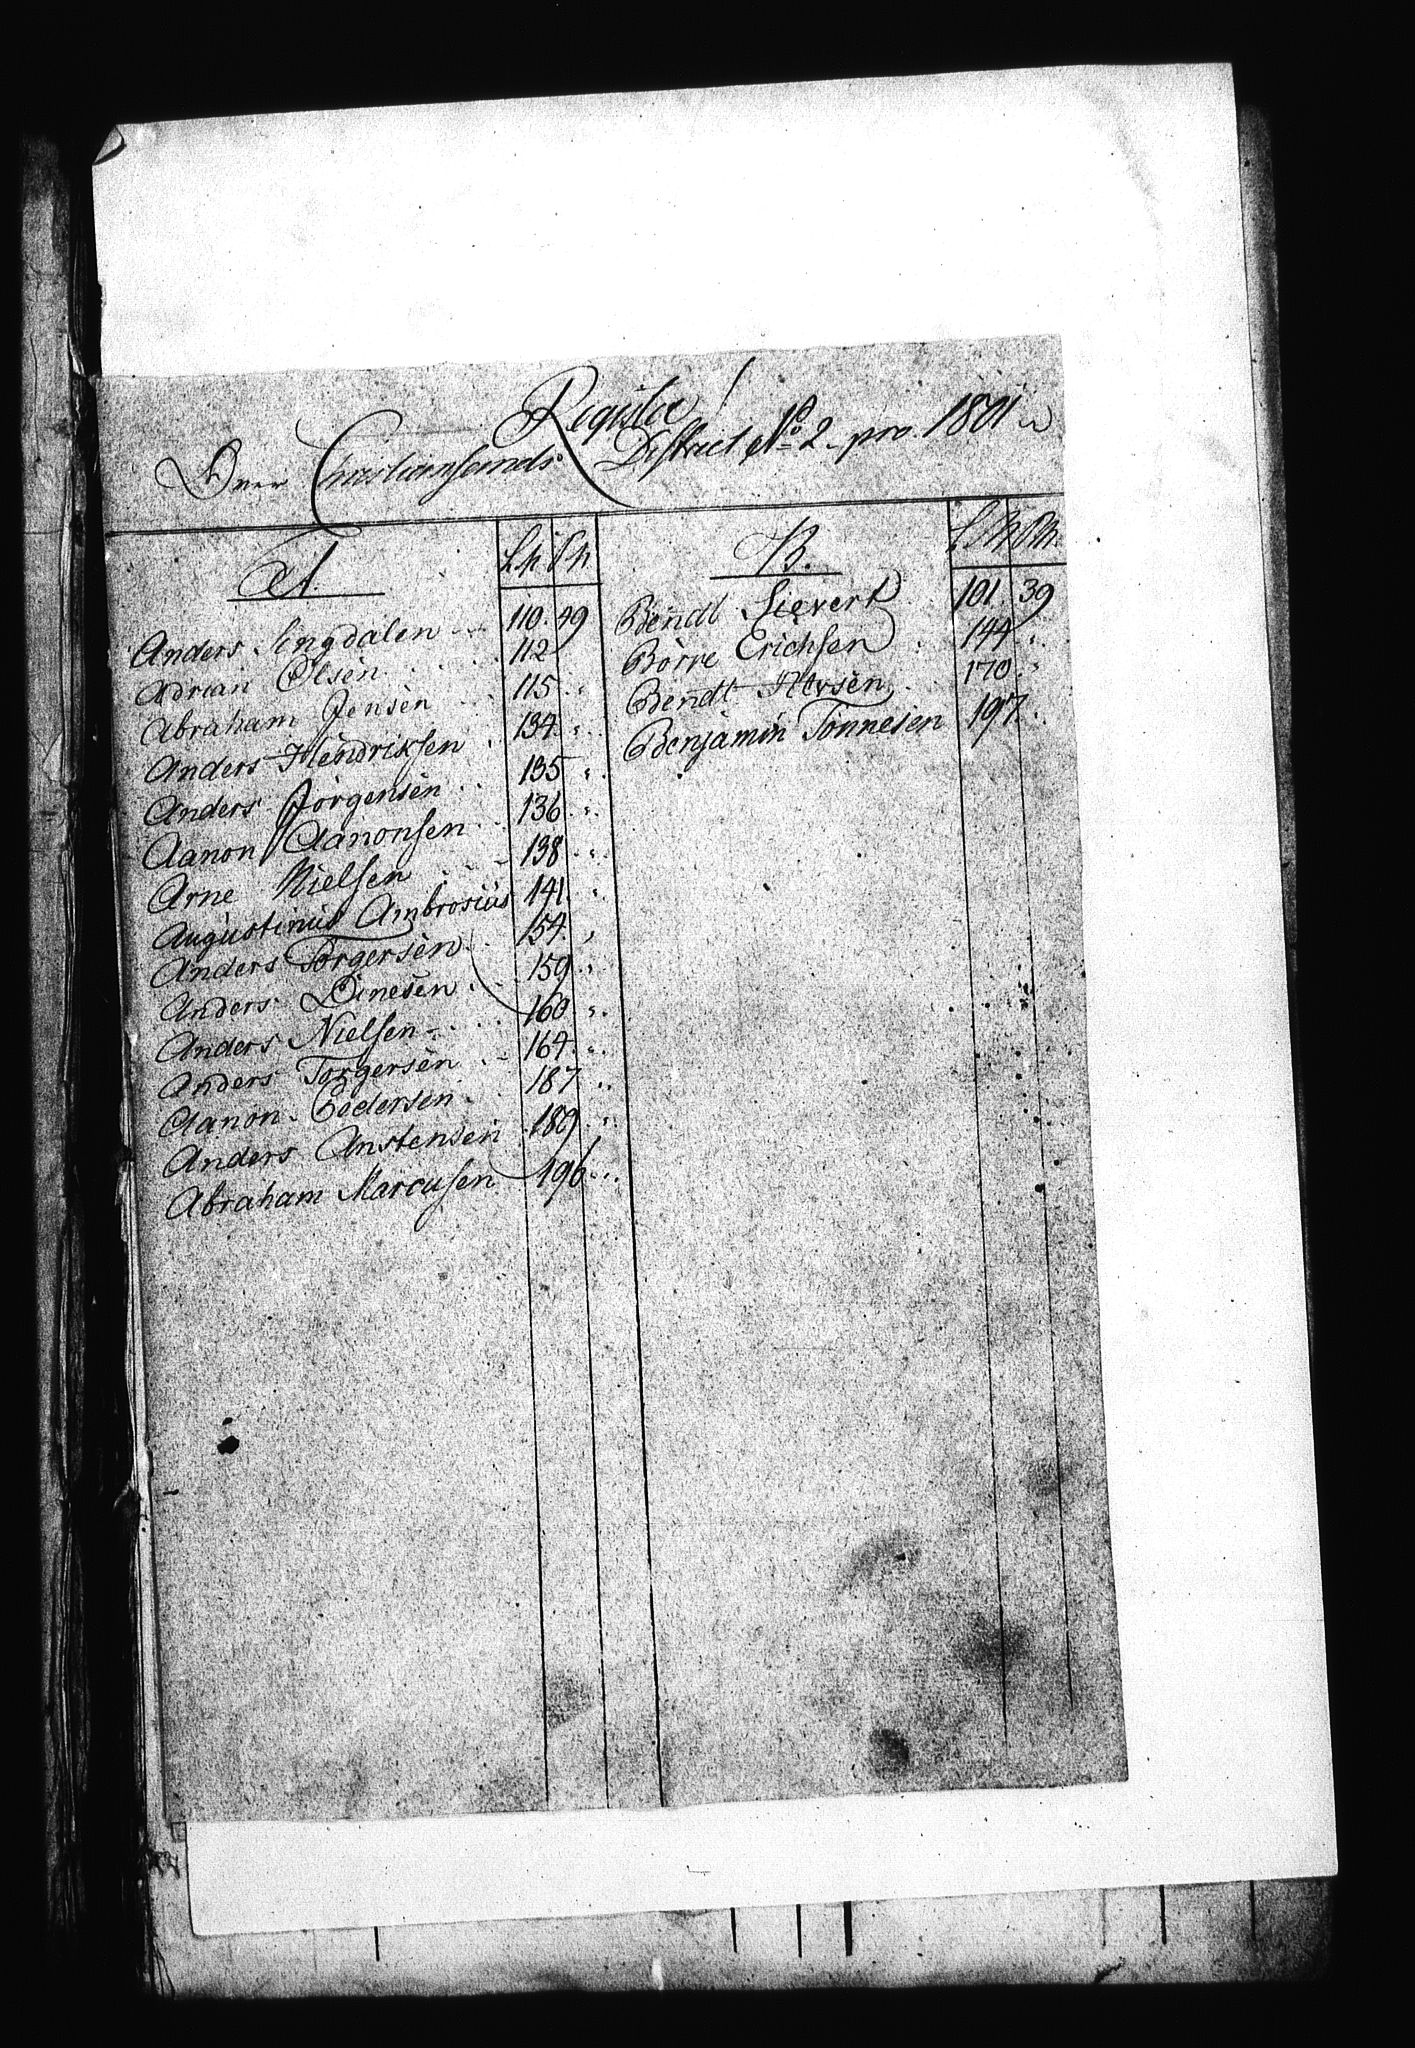 Register
Over Christiansands District No 2 pro 1801
A. L N
Anders 110. 49
Adrian Olsen 112
Abraham Jensen 115 "
Anders Hendriksen 134 "
Anders Jörgensen 135 "
Aanon Aanonsen 136 "
Arne Nielsen 138 "
Augustinus Ambrosius 141 "
Anders Torgersen 154 "
Anders Dinesen 159 "
Anders Nielsen 160 "
Anders Torgersen 164 "
Aanon Pedersen 187 "
Anders Anstensen 189 "
Abraham Marcusen 196 "
B.
Bendt Sievert 101. 39
Börre Erichsen 144 "
Bendt 170 "
Benjamin Tönnesen 197 "